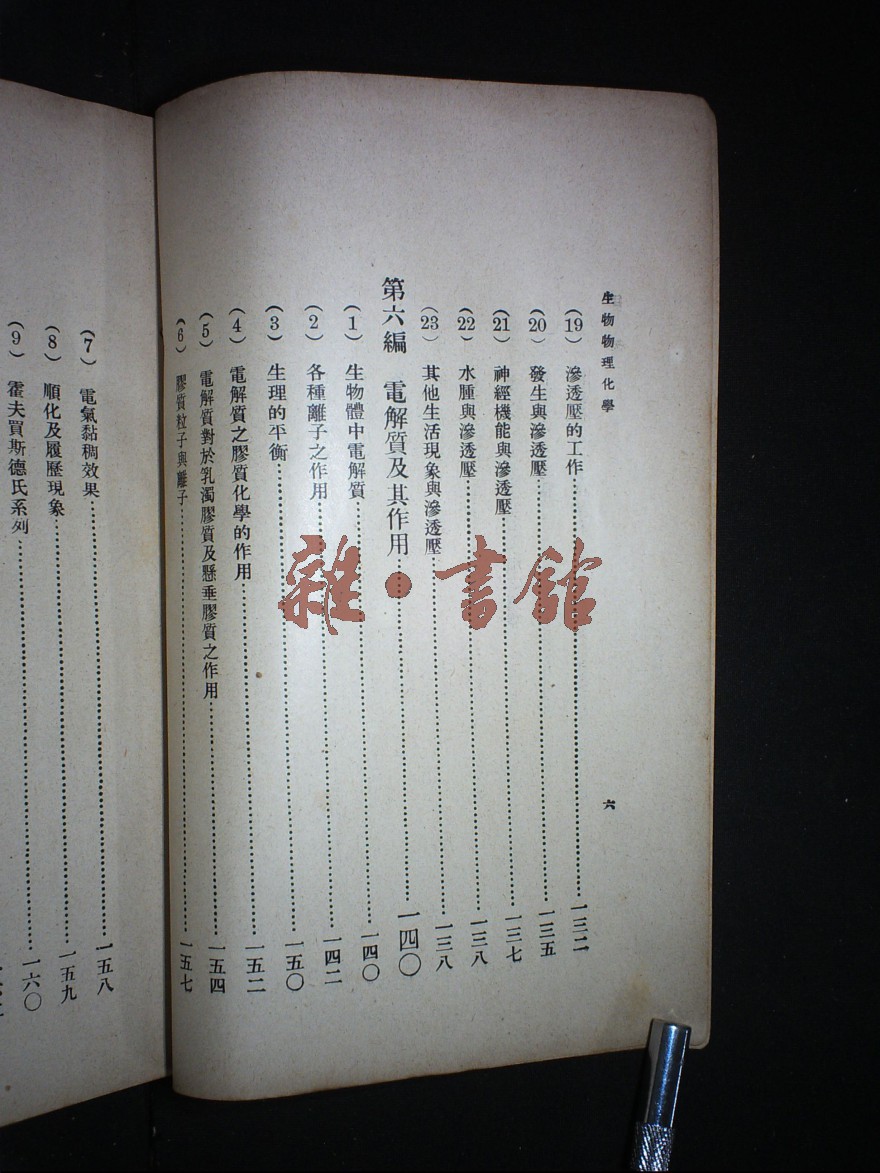 生物物理化學
六
(19) 滲透壓的工作……一三二
(20) 發生與滲透壓……一三五
(21) 神經機能與滲透壓……一三七
(22) 水腫與滲透壓……一三八
(23) 其他生活現象與滲透壓……一三八
第六編 電解質及其作用……一四〇
(1) 生物體中電解質……一四〇
(2) 各種離子之作用……一四二
(3) 生理的平衡……一五〇
(4) 電解質之膠質化學的作用……一五二
(5) 電解質對於乳濁膠質及懸垂膠質之作用……一五四
(6) 膠質粒子與離子……一五七
(7) 電氣黏稠效果……一五八
(8) 順化及履歷現象……一五九
(9) 霍夫買斯德氏系列……一六〇
雜·書館